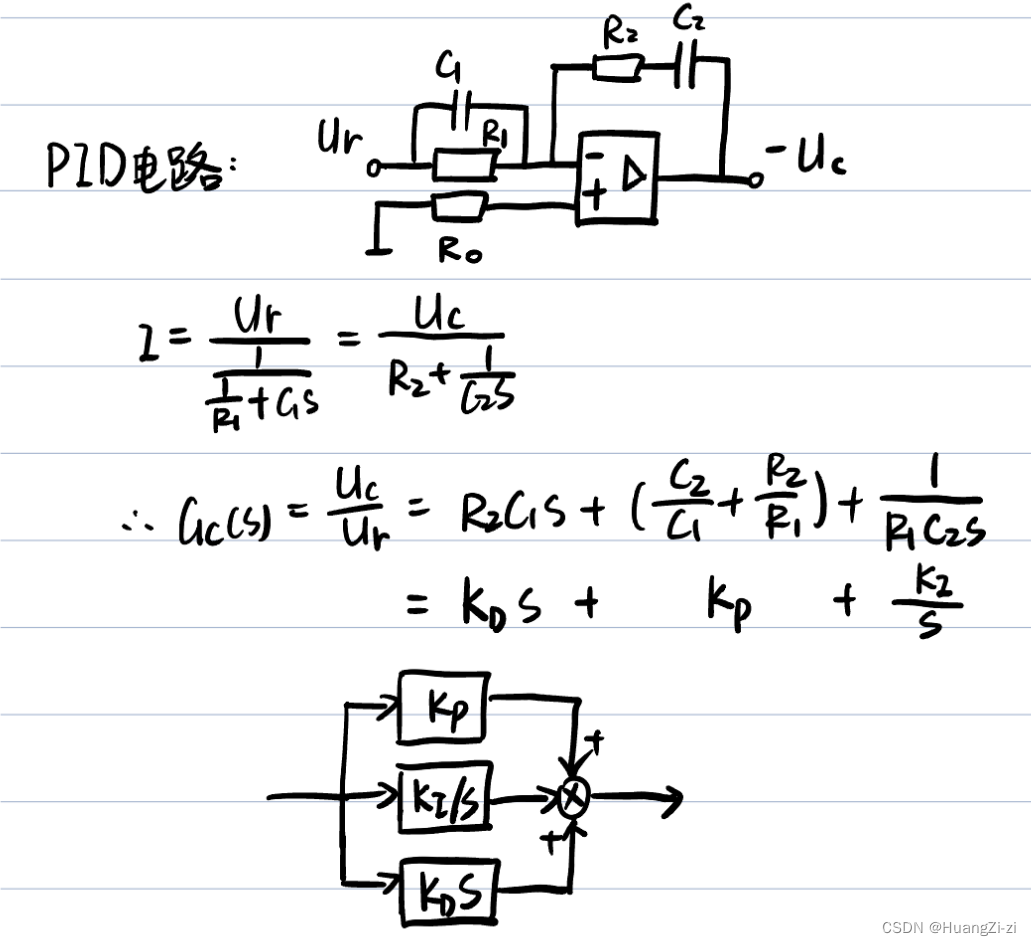 R₂ C₂
C₁
Ur R₁ - -Uc
PID电路: + ▷
R₀
I = Ur/(1/(1/R₁ + C₁S)) = Uc/(R₂ + 1/(C₂S))
∴ Gc(s) = Uc/Ur = R₂C₁S + (C₂/C₁ + R₂/R₁) + 1/(R₁C₂S)
= K_D S + Kp + K_I/S
Kp
+
K_I/S
+
K_D S
CSDN @HuangZi-zi